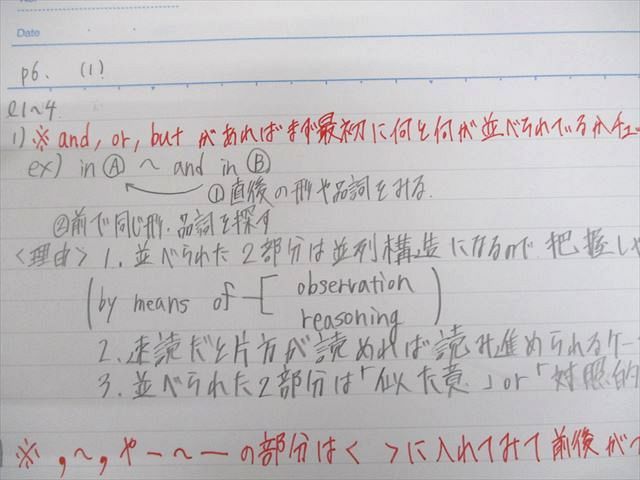 No.
Date
p6. (1)
l1~4.
1) ※ and, or, but があればまず最初に何と何が並べられているかチェッ
ex) in Ⓐ ~ and in Ⓑ
①直後の形や品詞をみる.
②前で同じ形.品詞を探す
<理由> 1. 並べられた2部分は並列構造になるので把握しや
(by means of [observation
reasoning])
2. 速読だと片方が読めれば読み進められるケー
3. 並べられた2部分は「似た意」or「対照的
※ ,~, や ー~ー の部分は < > に入れてみて前後が